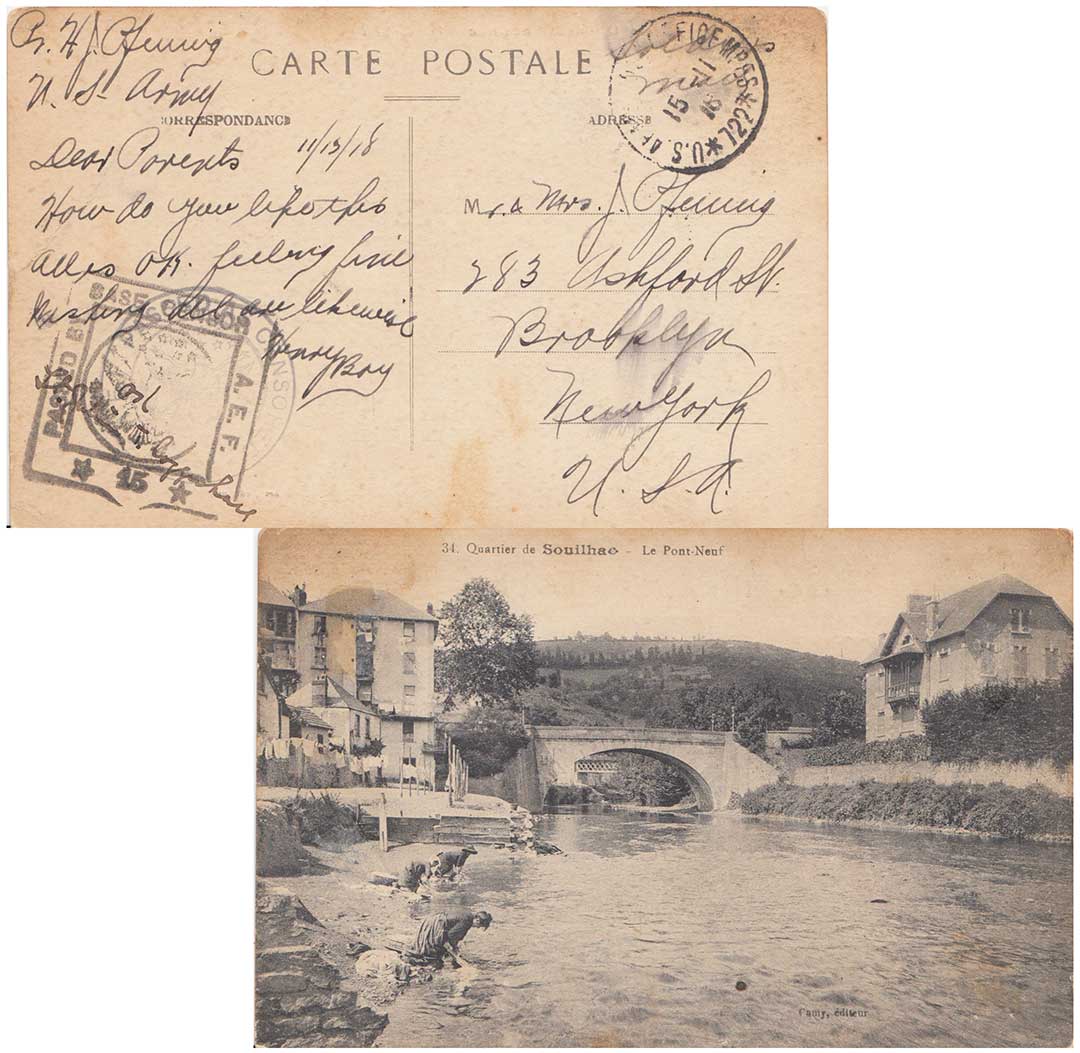 Pr. H J. Pfennig
U. S. Army
CARTE POSTALE
Soldiers
mail
CORRESPONDANCE
ADRESSE
U.S. *722*
15 11 18
Dear Parents 11/15/18
How do you like this
All is OK. feeling fine
Wishing all are likewise
Henry
Boy
Mr. & Mrs. J. Pfennig
283 Ashford St.
Brooklyn
New York
U. S. A.
PASSED BY
BASE CENSOR
A. E. F.
★ 15 ★
OK
34. Quartier de Souilhac - Le Pont-Neuf
Camy, éditeur